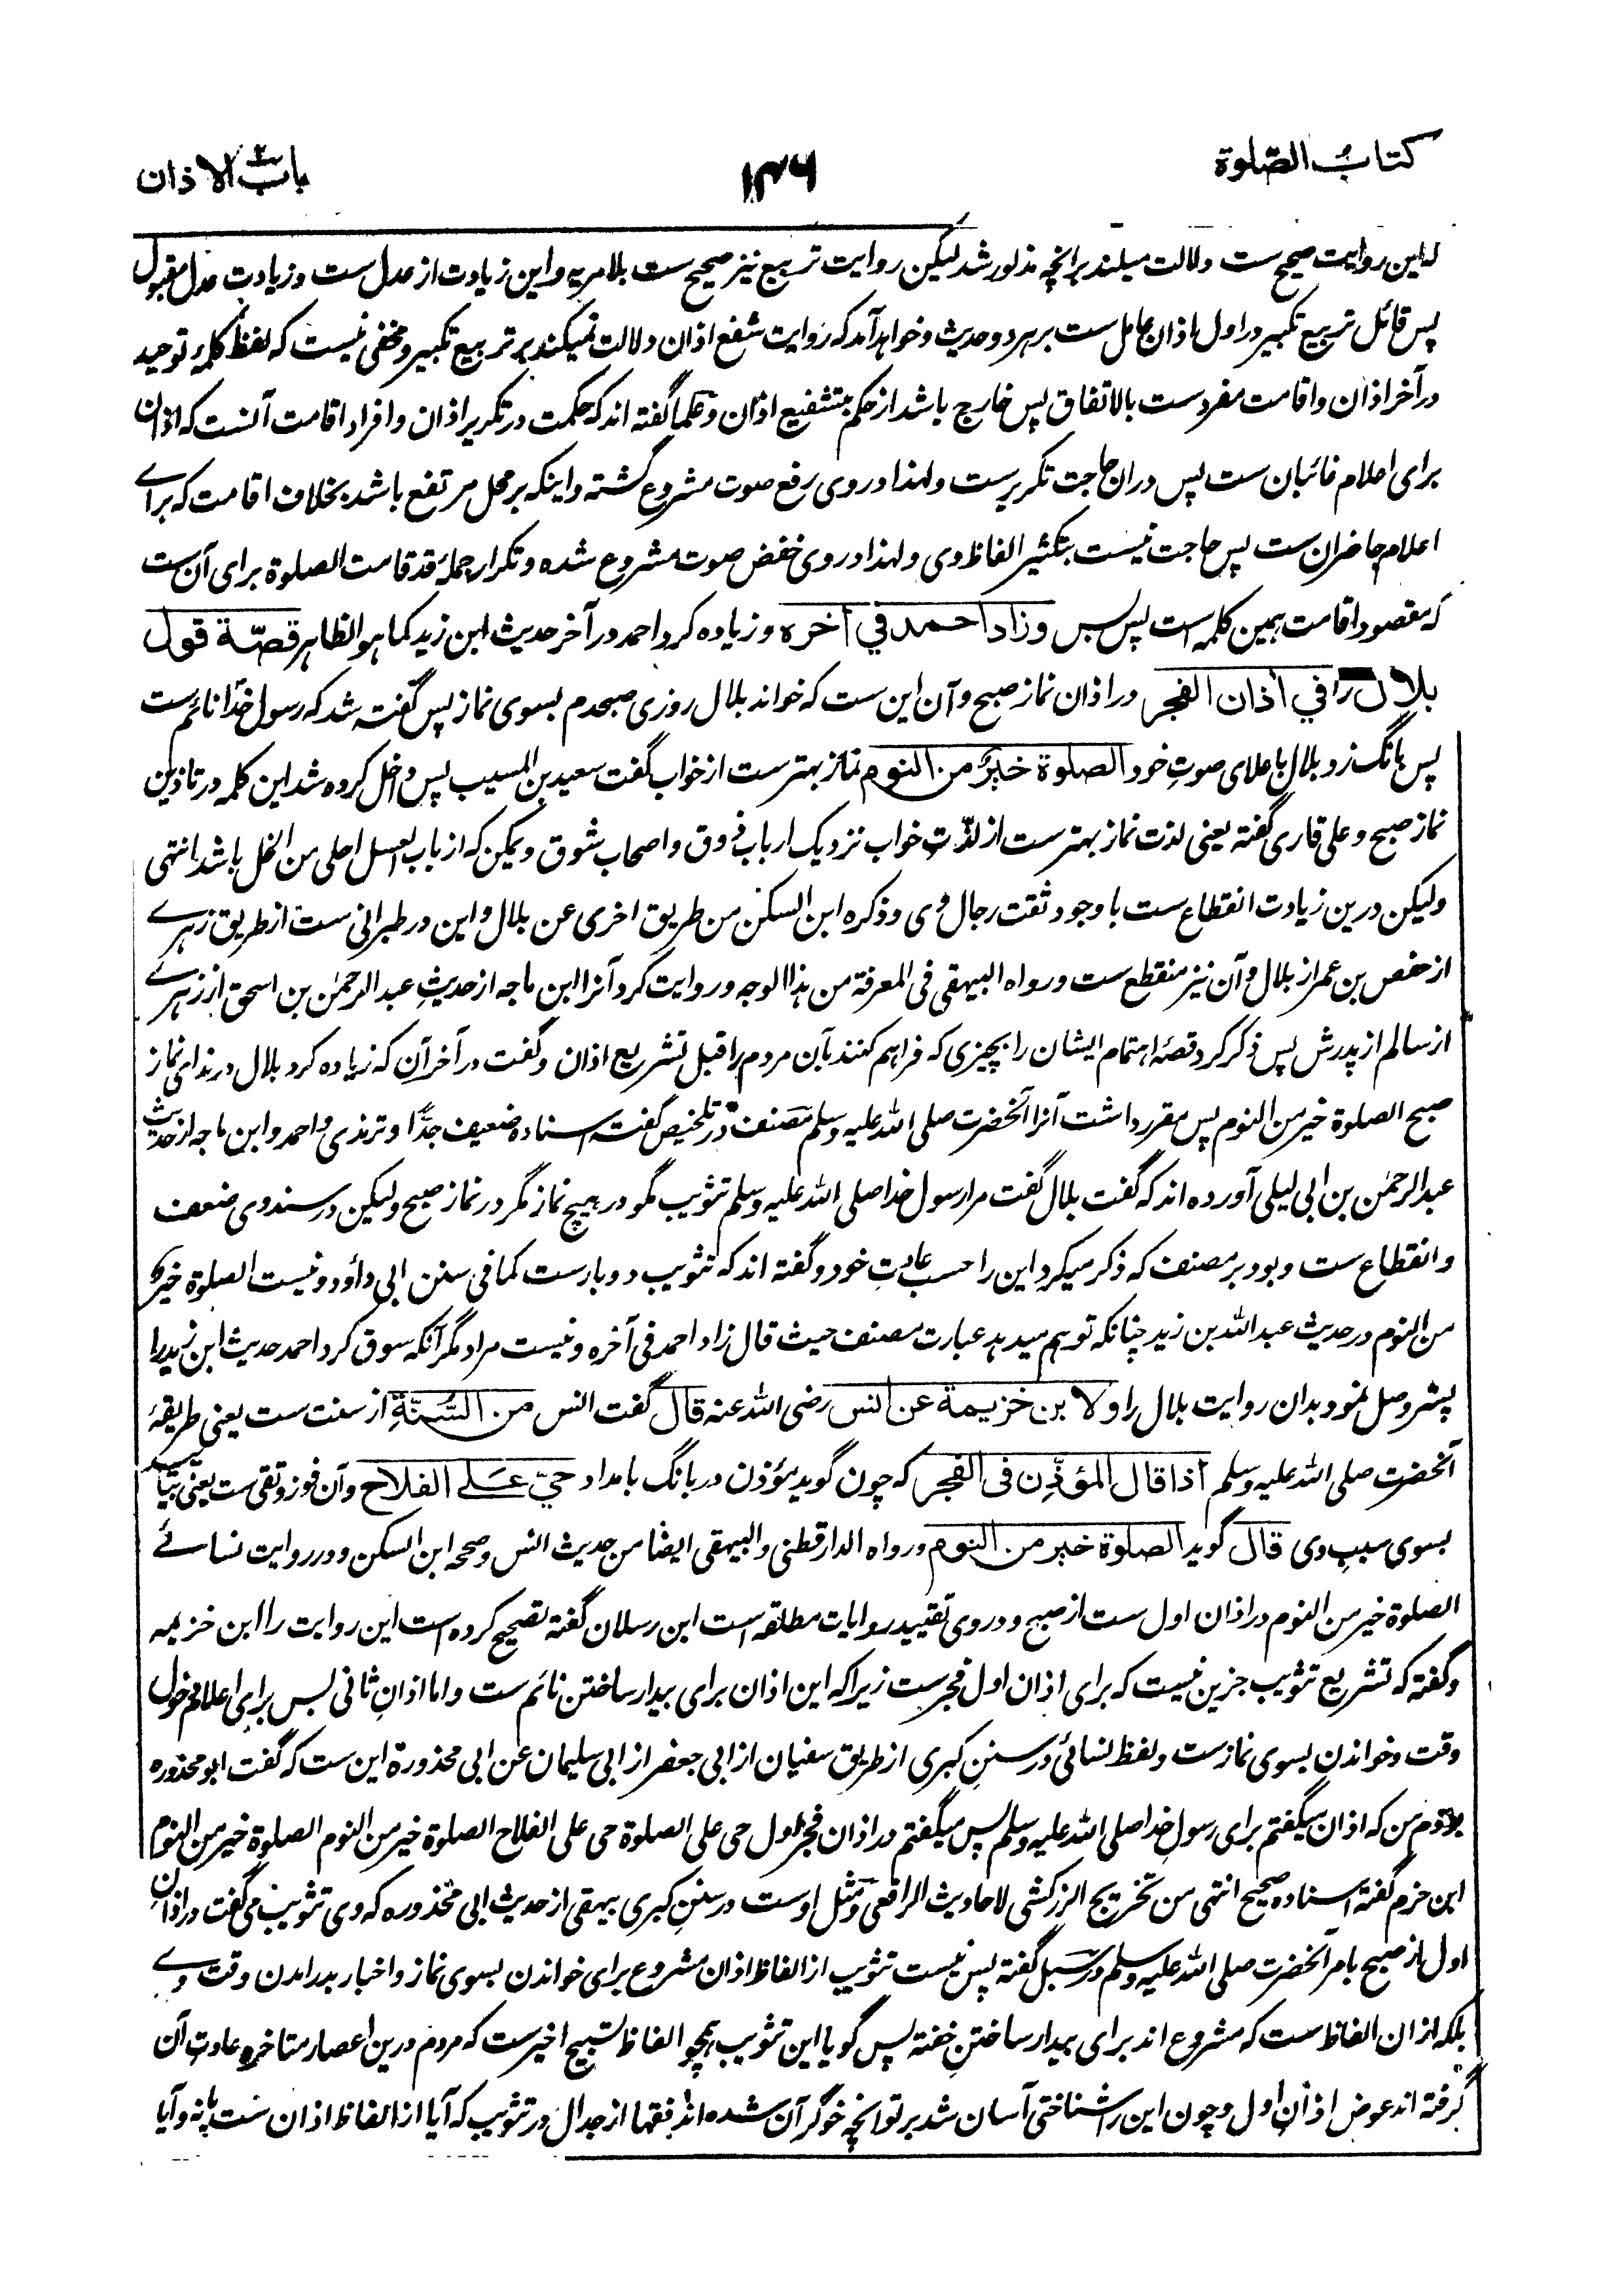 كتاب الصلوة
۱۴۶
باب الاذان
که این روایت صحیح ست دلالت میکند برانچه مذکور شد لیکن روایت تربیع نیز صحیح ست بلا مریه و این زیادت از عدل ست و زیادت عدل مقبول
پس قائل تربیع تکبیر در اول اذان عامل ست بر هر دو حدیث و خواهد آمد که روایت شفع اذان دلالت نمیکند بر تربیع تکبیر و مخفی نیست که لفظ کلمهٔ توحید
در آخر اذان و اقامت مفرد ست بالاتفاق پس خارج باشد از حکم بتشفیع اذان و علما گفته اند که حکمت در تکریر اذان و افراد اقامت آنست که اذان
برای اعلام غائبان ست پس دران حاجت تکریر ست ولهذا در وی رفع صوت مشروع گشته و اینکه بر محل مرتفع باشد بخلاف اقامت که برای
اعلام حاضران ست پس حاجت نیست بتکثیر الفاظ وی ولهذا در وی خفض صوت مشروع شده و تکرار جملهٔ قد قامت الصلوة برای آن ست
که مقصود اقامت همین کلمه است پس بس وزاد احمد في آخره و زیاده کرد احمد در آخر حدیث ابن زید کما هو الظاهر قصة قول
بلال را في أذان الفجر در اذان نماز صبح و آن این ست که خواند بلال روزی صبحدم بسوی نماز پس گفته شد که رسول خدا نائم ست
پس بانگ زد بلال با علای صوت خود الصلوة خير من النوم نماز بهتر ست از خواب گفت سعید بن المسیب پس داخل کرده شد این کلمه در تاذین
نماز صبح و علی قاری گفته یعنی لذت نماز بهتر ست از لذّتِ خواب نزدیک ارباب ذوق و اصحاب شوق و یمکن که از باب العسل احلی من الخل باشد انتهی
ولیکن درین زیادت انقطاع ست با وجود ثقت رجال وی و ذکره ابن السکن من طریق اخری عن بلال و این در طبرانی ست از طریق زهری
از حفص بن عمر از بلال و آن نیز منقطع ست و رواه البیهقی فی المعرفة من هذا الوجه و روایت کرد آنرا ابن ماجه از حدیث عبد الرحمٰن بن اسحق از زهری
از سالم از پدرش پس ذکر کرد قصهٔ اهتمام ایشان را بچیزی که فراهم کنند بآن مردم را قبل تشریع اذان و گفت در آخر آن که زیاده کرد بلال در ندای نماز
صبح الصلوة خیر من النوم پس مقرر داشت آنرا آنحضرت صلی الله علیه وسلم مصنف در تلخیص گفته اسناده ضعیف جدًّا و ترمذی و احمد و ابن ماجه از حدیث
عبد الرحمٰن بن ابی لیلی آورده اند که گفت بلال گفت مرا رسول خدا صلی الله علیه وسلم تثویب مگو در هیچ نماز مگر در نماز صبح ولیکن در سند وی ضعف
و انقطاع ست و بود بر مصنف که ذکر میکرد این را حسب عادت خود و گفته اند که تثویب دو بار ست کما فی سنن ابی داؤد و نیست الصلوة خیر
من النوم در حدیث عبد الله بن زید چنانکه توهم میدهد عبارت مصنف حیث قال زاد احمد فی آخره و نیست مراد مگر آنکه سوق کرد احمد حدیث ابن زید را
پستر وصل نمود بدان روایت بلال را ولابن خزيمة عن انس رضی الله عنه قال گفت انس من السُّنّةِ از سنت ست یعنی طریقهٔ
آنحضرت صلی الله علیه وسلم اذا قال المؤذِّن فى الفجر که چون گوید مؤذن در بانگ بامداد حيّ على الفلاح و آن فوز و تقی ست یعنی بیائید
بسوی سبب وی قال گوید الصلوة خير من النوم ورواه الدارقطنی والبیهقی ایضًا من حدیث انس وصححه ابن السکن و در روایت نسائے
الصلوة خیر من النوم در اذان اول ست از صبح و در وی تقیید روایات مطلقه است ابن رسلان گفته تصحیح کرده است این روایت را ابن خزیمه
و گفته که تشریع تثویب جزین نیست که برای اذان اول فجر ست زیرا که این اذان برای بیدار ساختن نائم ست و اما اذانِ ثانی پس برای اعلام دخول
وقت و خواندن بسوی نماز ست و لفظ نسائی در سنن کبری از طریق سفیان از ابی جعفر از ابی سلیمان عن ابی محذورة این ست که گفت ابو محذوره
بودم من که اذان میگفتم برای رسول خدا صلی الله علیه وسلم پس میگفتم در اذان فجر اول حی علی الصلوة حی علی الفلاح الصلوة خیر من النوم الصلوة خیر من النوم
ابن حزم گفته اسناده صحیح انتهی من تخریج الزرکشی لاحادیث الرافعی و مثل اوست در سنن کبری بیهقی از حدیث ابی محذوره که وی تثویب میگفت در اذان
اول از صبح بامر آنحضرت صلی الله علیه وسلم در سبل گفته پس نیست تثویب از الفاظ اذان مشروع برای خواندن بسوی نماز و اخبار بدرامدن وقت وے
بلکه ازان الفاظ ست که مشروع اند برای بیدار ساختنِ خفته پس گویا این تثویب همچو الفاظ تسبیح اخیر ست که مردم درین اعصار متاخره عادت آن
گرفته اند عوض اذان اول و چون این را شناختی آسان شد بر تو انچه خوگر آن شده اند فقها از جدال در تثویب که آیا از الفاظ اذان ست یا نه و آیا